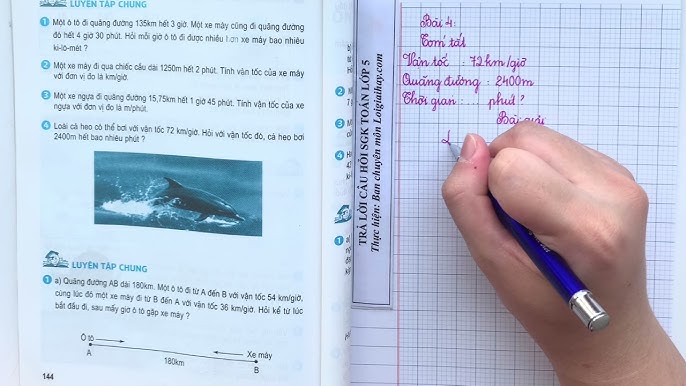 LUYỆN TẬP CHUNG
1 Một ô tô đi quãng đường 135km hết 3 giờ. Một xe máy cũng đi quãng đường
đó hết 4 giờ 30 phút. Hỏi mỗi giờ ô tô đi được nhiều hơn xe máy bao nhiêu
ki-lô-mét ?
2 Một xe máy đi qua chiếc cầu dài 1250m hết 2 phút. Tính vận tốc của xe máy
với đơn vị đo là km/giờ.
3 Một xe ngựa đi quãng đường 15,75km hết 1 giờ 45 phút. Tính vận tốc của xe
ngựa với đơn vị đo là m/phút.
4 Loài cá heo có thể bơi với vận tốc 72 km/giờ. Hỏi với vận tốc đó, cá heo bơi
2400m hết bao nhiêu phút ?
LUYỆN TẬP CHUNG
1 a) Quãng đường AB dài 180km. Một ô tô đi từ A đến B với vận tốc 54 km/giờ,
cùng lúc đó một xe máy đi từ B đến A với vận tốc 36 km/giờ. Hỏi kể từ lúc
bắt đầu đi, sau mấy giờ ô tô gặp xe máy ?
Ô tô
Xe máy
A
180km
B
144
TRẢ LỜI CÂU HỎI SGK TOÁN LỚP 5
Thực hiện: Ban chuyên môn Loigiaihay.com
Bài 4:
Tóm tắt
Vận tốc : 72km/giờ
Quãng đường : 2400m
Thời gian : .... phút ?
Bài giải